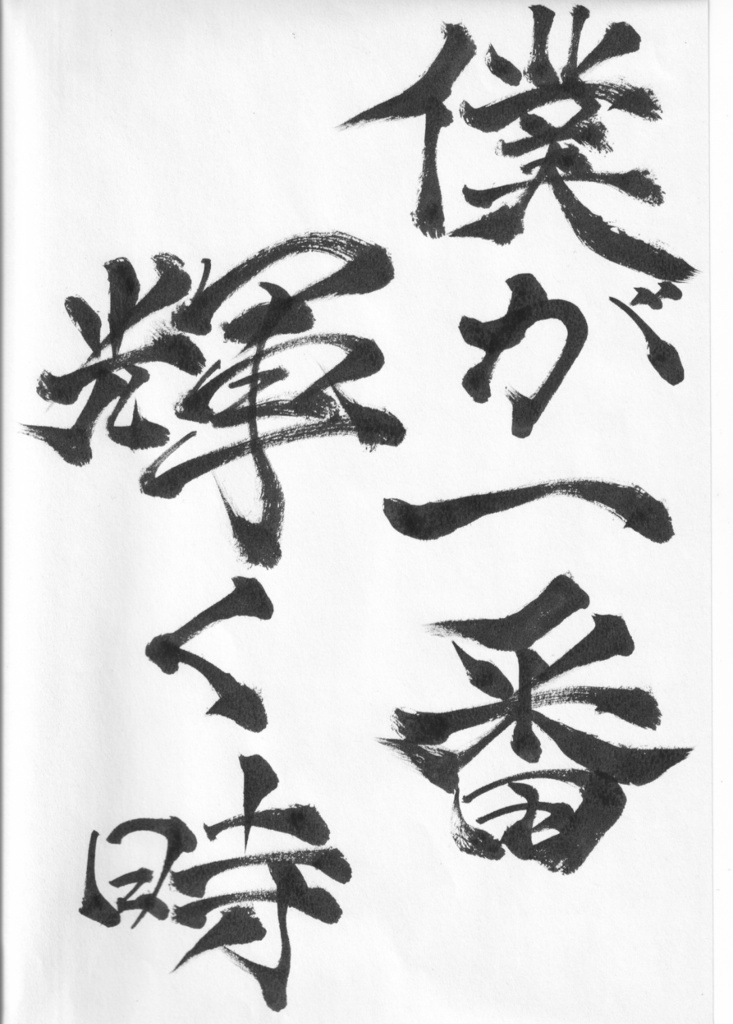 僕が一番
輝く時